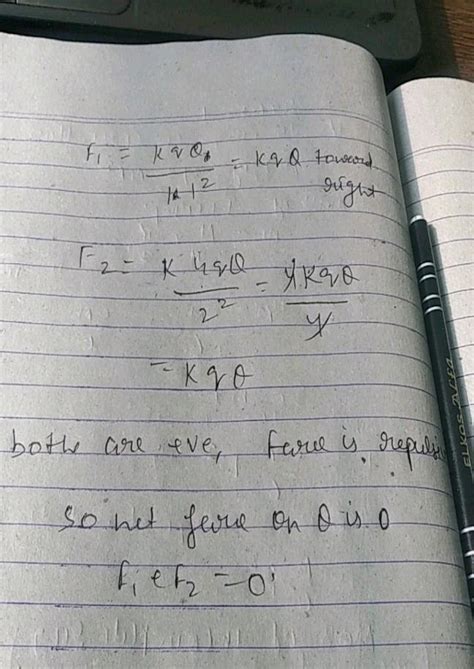 F₁ = KqQ / 1² = KqQ toward
right
F₂ = K 4qQ / 2² = 4KqQ / 4
= KqQ
both are +ve, force is repulsi
so net force on Q is 0
F₁ + F₂ = 0